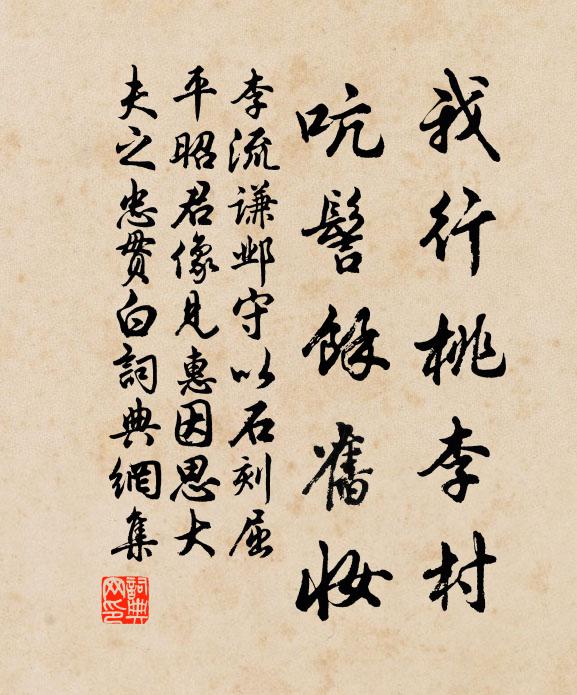 我行桃李村
吭髻餘舊妝
李流謙邺守以石刻屈
平昭君像見惠因思大
夫之忠貫白詞典網集
詞典网印